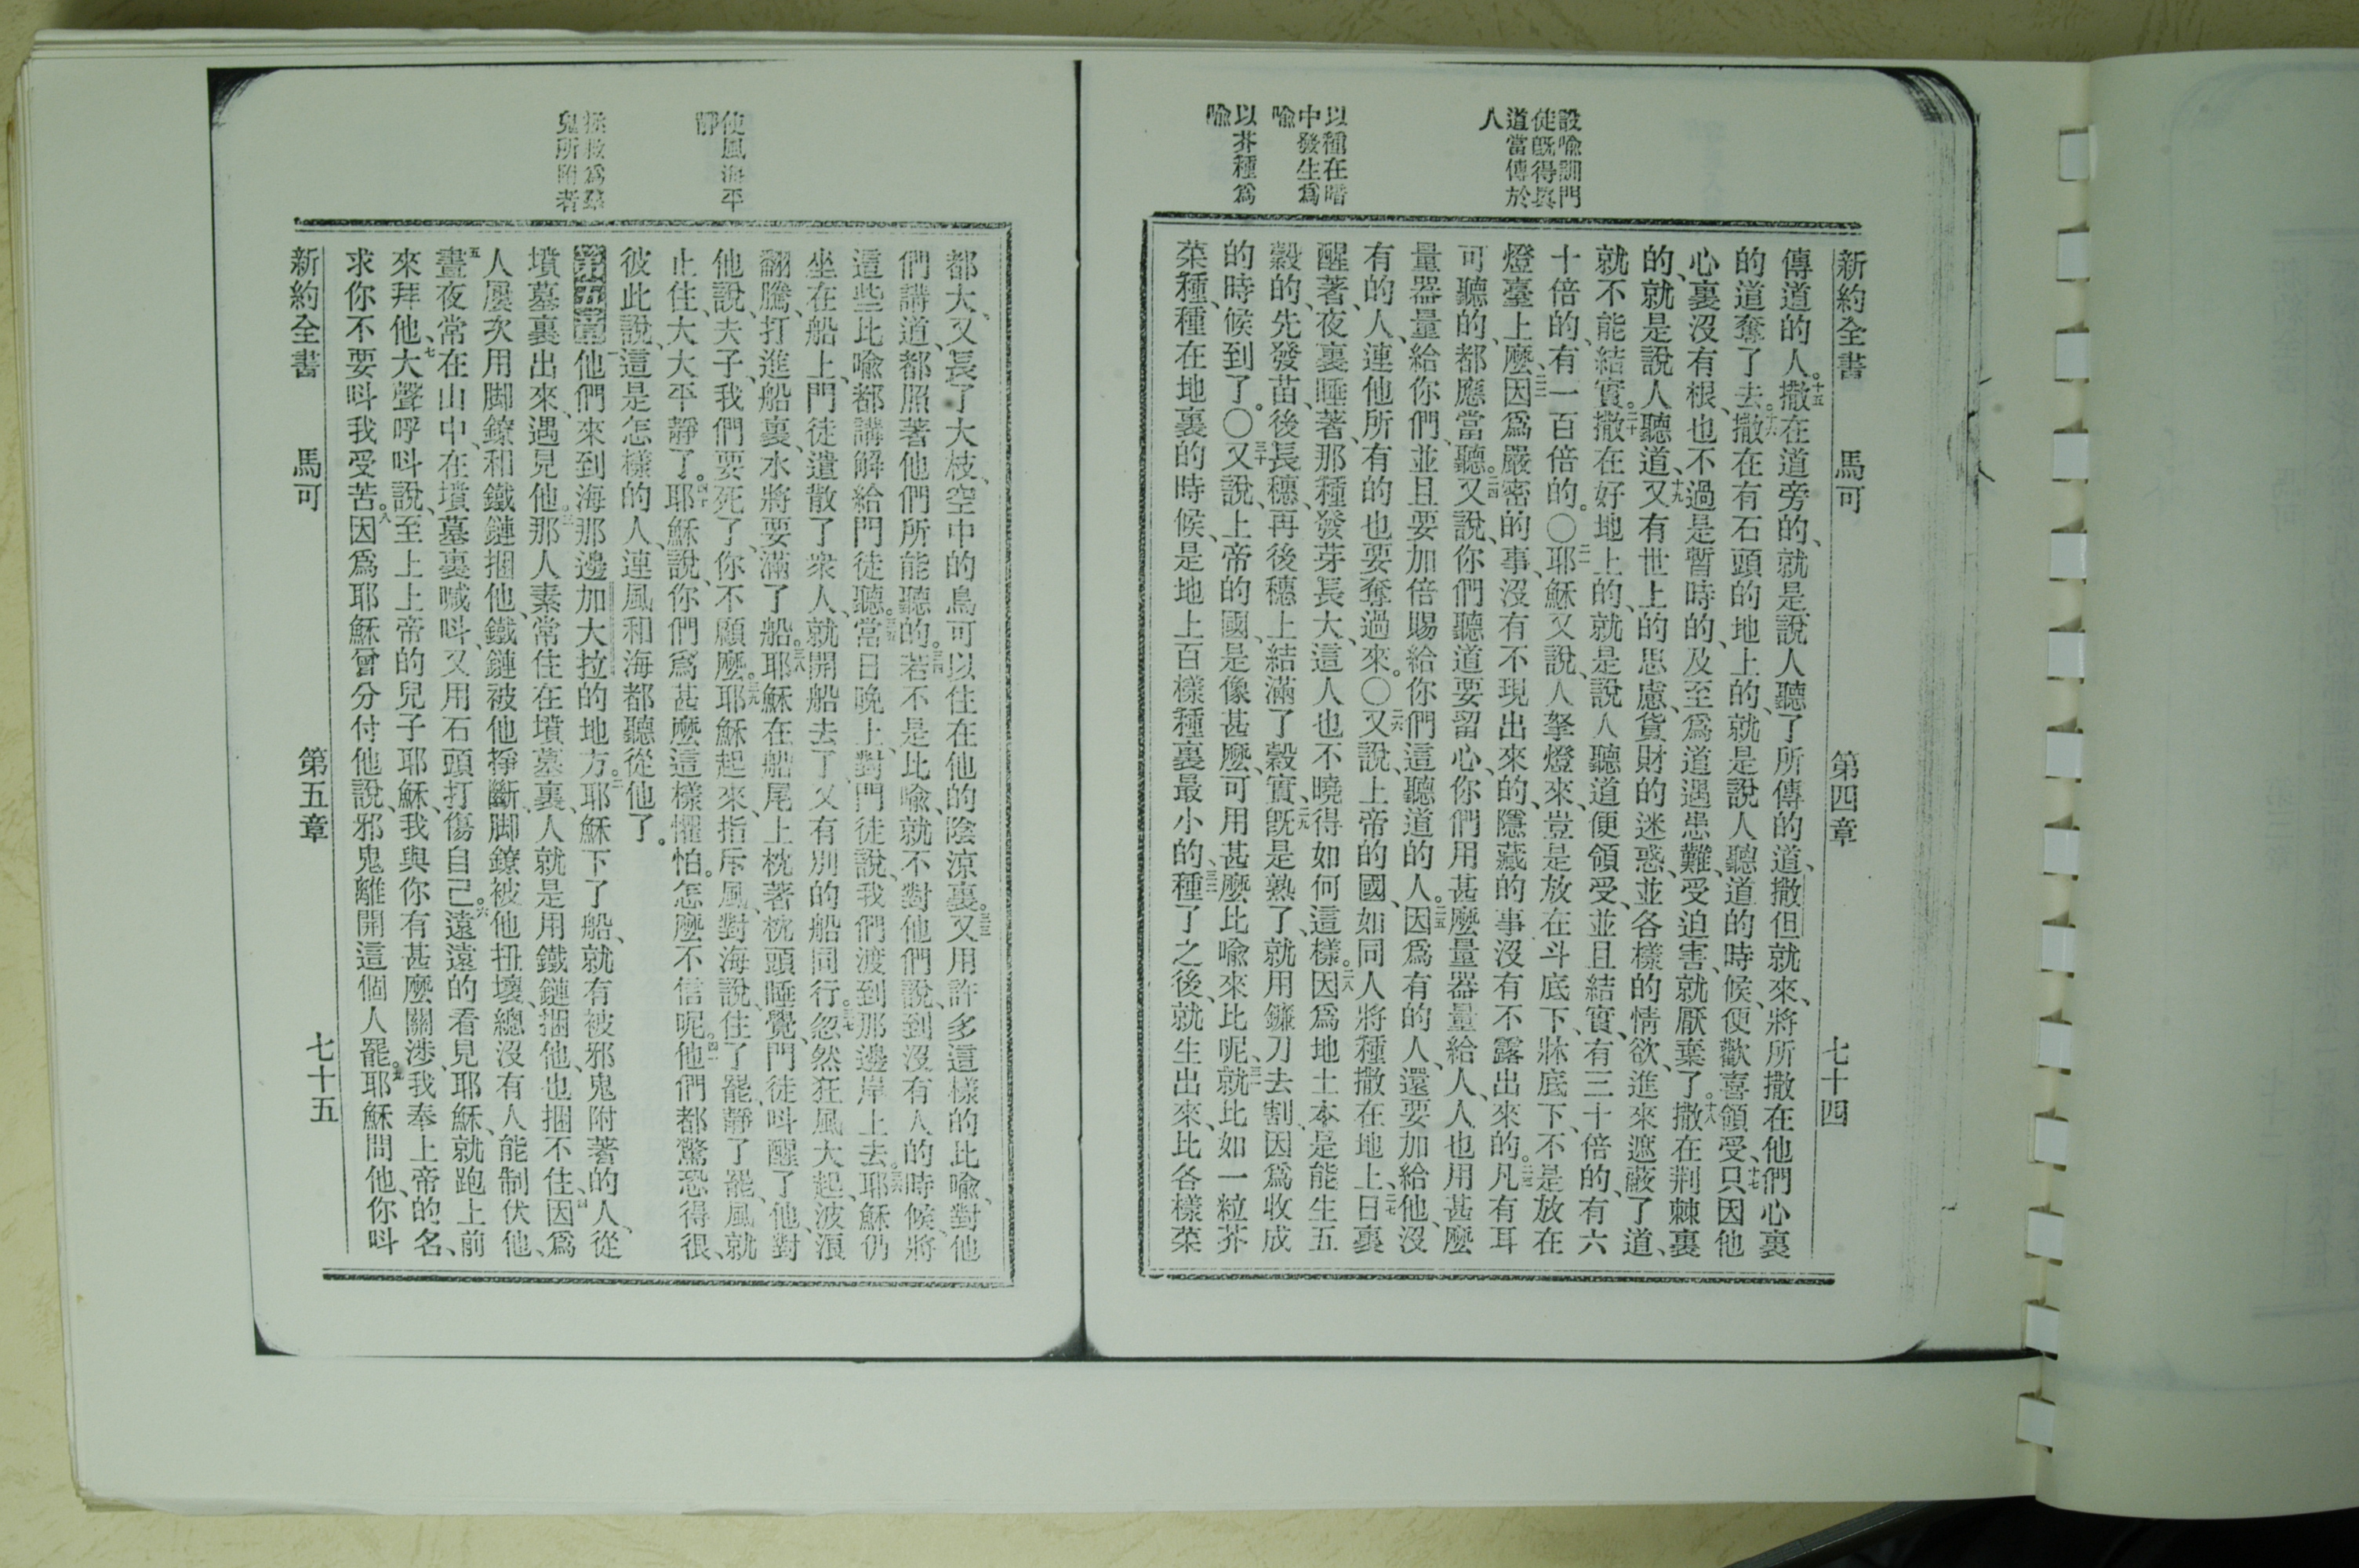 新約全書 馬可 第四章 七十四
設喻訓門
徒旣得眞
道當傳於
人
以種在暗
中發生爲
喻
以芥種爲
喻
傳道的人。十五撒在道旁的、就是說人聽了所傳的道、撒但就來、將所撒在他們心裏
的道奪了去。十六撒在有石頭的地上的、就是說人聽道的時候、便歡喜領受、十七只因他
心裏沒有根、也不過是暫時的、及至爲道遇患難、受迫害、就厭棄了。十八撒在荆棘裏
的、就是說人聽道、十九又有世上的思慮、貨財的迷惑、並各樣的情欲、進來遮蔽了道、
就不能結實。二十撒在好地上的、就是說人聽道便領受、並且結實、有三十倍的、有六
十倍的、有一百倍的。〇二一耶穌又說、人拏燈來、豈是放在斗底下、牀底下、不是放在
燈臺上麽、二二因爲嚴密的事、沒有不現出來的、隱藏的事沒有不露出來的。二三凡有耳
可聽的、都應當聽。二四又說、你們聽道要留心、你們用甚麽量器量給人、人也用甚麽
量器量給你們、並且要加倍賜給你們這聽道的人。二五因爲有的人、還要加給他、沒
有的人、連他所有的也要奪過來。〇二六又說、上帝的國、如同人將種撒在地上、二七日裏
醒著、夜裏睡著、那種發芽長大、這人也不曉得如何這樣。二八因爲地土本是能生五
穀的、先發苗、後長穗、再後穗上結滿了穀實、二九旣是熟了、就用鐮刀去割、因爲收成
的時候到了。〇三十又說、上帝的國、是像甚麽、可用甚麽比喻來比呢、三一就比如一粒芥
菜種、種在地裏的時候、是地上百樣種裏最小的、三二種了之後、就生出來、比各樣菜
使風海平
靜
拯救爲羣
鬼所附者
都大、又長了大枝、空中的鳥可以住在他的陰涼裏。三三又用許多這樣的比喻、對他
們講道、都照著他們所能聽的。三四若不是比喻、就不對他們說、到沒有人的時候、將
這些比喻都講解給門徒聽。三五當日晚上、對門徒說、我們渡到那邊岸上去。三六耶穌仍
坐在船上、門徒遣散了衆人、就開船去了、又有別的船同行。三七忽然狂風大起、波浪
翻騰、打進船裏、水將要滿了船。三八耶穌在船尾上枕著枕頭睡覺、門徒呌醒了他、對
他說、夫子、我們要死了、你不顧麽。三九耶穌起來、指斥風、對海說、住了罷、靜了罷、風就
止住、大大平靜了。四十耶穌說、你們爲甚麽這樣懼怕。怎麽不信呢。四一他們都驚恐得很、
彼此說、這是怎樣的人、連風和海都聽從他了。
第五章一他們來到海那邊加大拉的地方。二耶穌下了船、就有被邪鬼附著的人、從
墳墓裏出來、遇見他。三那人素常住在墳墓裏、人就是用鐵鏈捆他、也捆不住、四因爲
人屢次用脚鐐和鐵鏈捆他、鐵鏈被他掙斷、脚鐐被他扭壞、總沒有人能制伏他、
五晝夜常在山中、在墳墓裏喊呌、又用石頭打傷自己。六遠遠的看見耶穌、就跑上前
來拜他、七大聲呼呌說、至上上帝的兒子耶穌、我與你有甚麽關涉、我奉上帝的名、
求你不要呌我受苦。八因爲耶穌曾分付他說、邪鬼離開這個人罷。九耶穌問他、你呌
新約全書 馬可 第五章 七十五